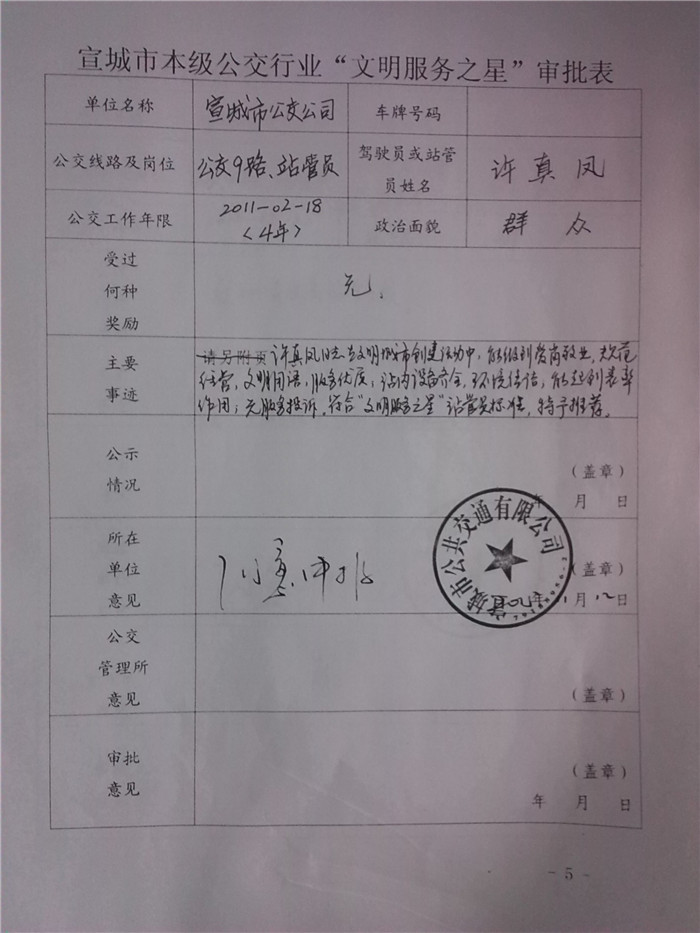 宣城市本级公交行业“文明服务之星”审批表
单位名称 宣城市公交公司 车牌号码
公交线路及岗位 公交9路、站管员 驾驶员或站管员姓名 许真凤
公交工作年限 2011-02-18 <4年> 政治面貌 群众
受过何种奖励 无.
主要事迹 请另附页 许真凤同志在文明城市创建活动中,能做到爱岗敬业,规范
经营,文明用语,服务优质,站内设备齐全,环境整洁,能起到表率
作用;无服务投诉,符合“文明服务之星”站管员标准,特予推荐。
公示情况 (盖章)
年 月 日
所在单位意见 同意申报 (盖章)
月 日
宣城市公共交通有限公司
公交管理所意见 (盖章)
审批意见 (盖章)
年 月 日
- 5 -